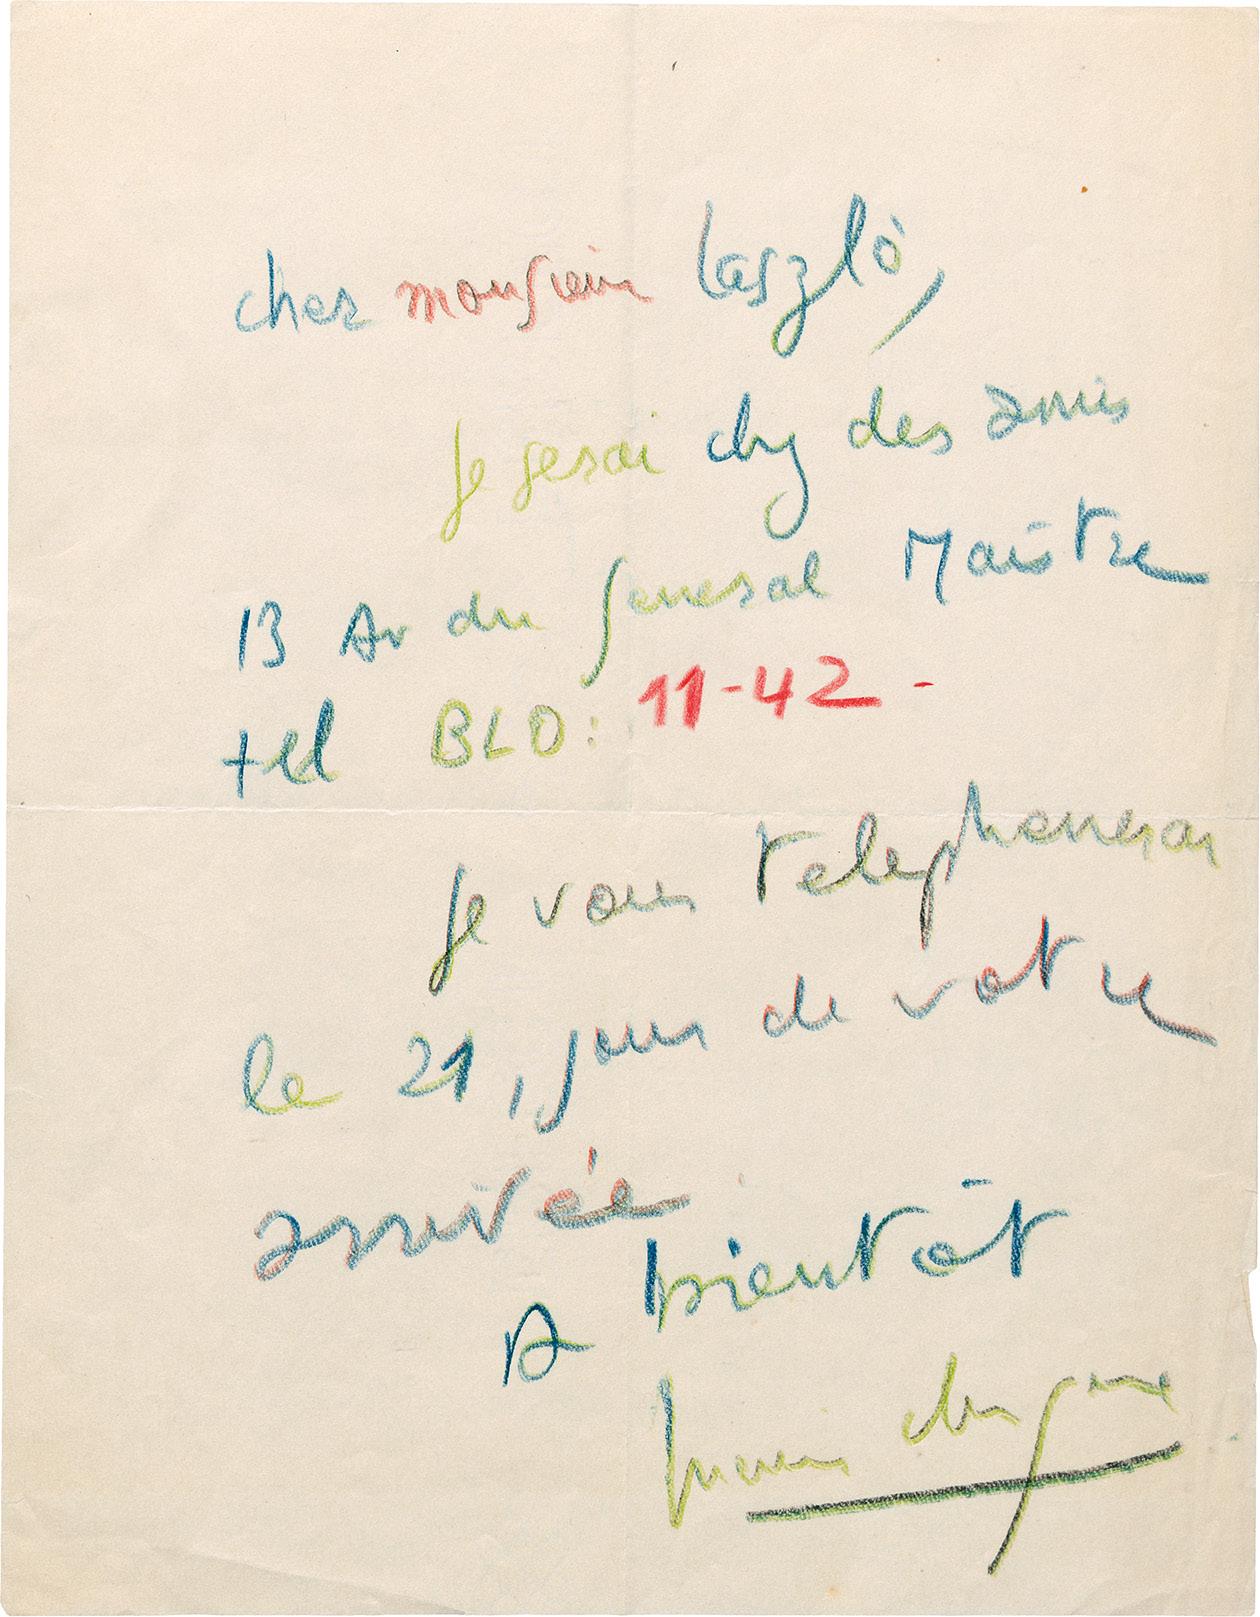 cher monsieur Laszló,
Je serai chez des amis
13 Av du general Maistre
tel BLO: 11-42 -
Je vous telephonerai
le 21, jour de votre
arrivée
A bientôt